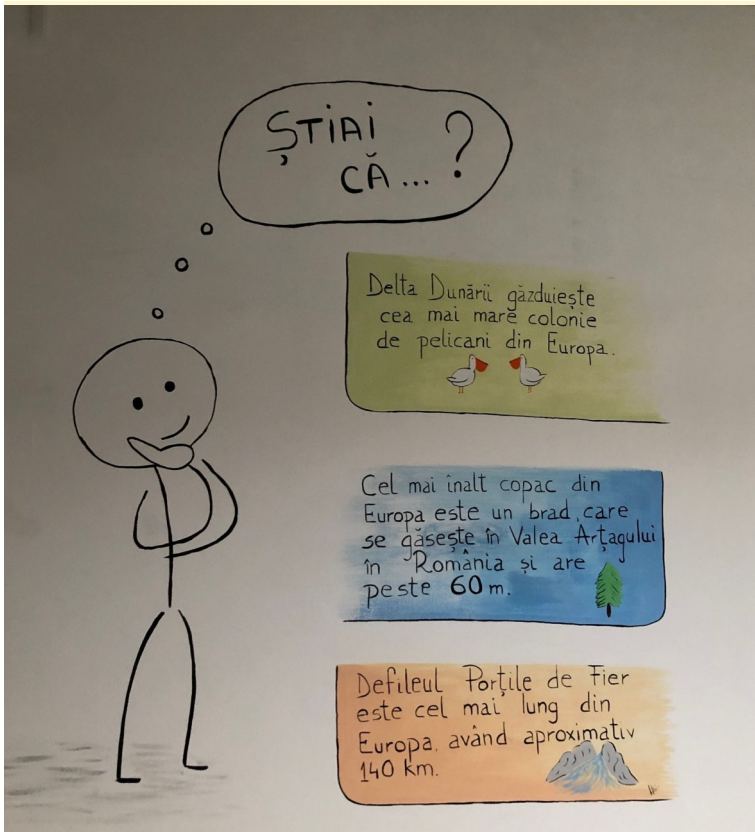 ȘTiAi
CĂ... ?
Delta Dunării găzduiește
cea mai mare colonie
de pelicani din Europa.
Cel mai înalt copac din
Europa este un brad, care
se găsește în Valea Arțagului
în România și are
peste 60 m.
Defileul Porțile de Fier
este cel mai lung din
Europa, având aproximativ
140 km.